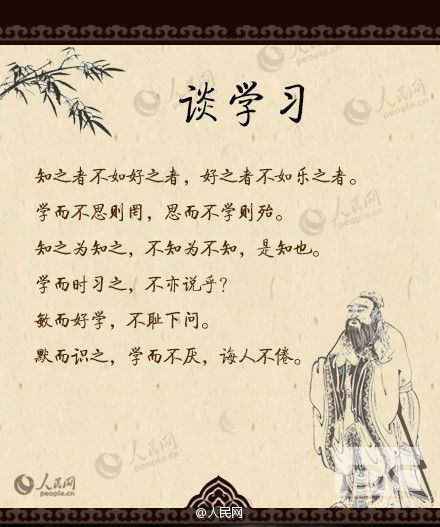 人民网
people.cn
人民网
people.cn
谈学习
知之者不如好之者，好之者不如乐之者。
学而不思则罔，思而不学则殆。
知之为知之，不知为不知，是知也。
学而时习之，不亦说乎？
敏而好学，不耻下问。
默而识之，学而不厌，诲人不倦。
人民网
people.cn
人民网
people.cn
@人民网